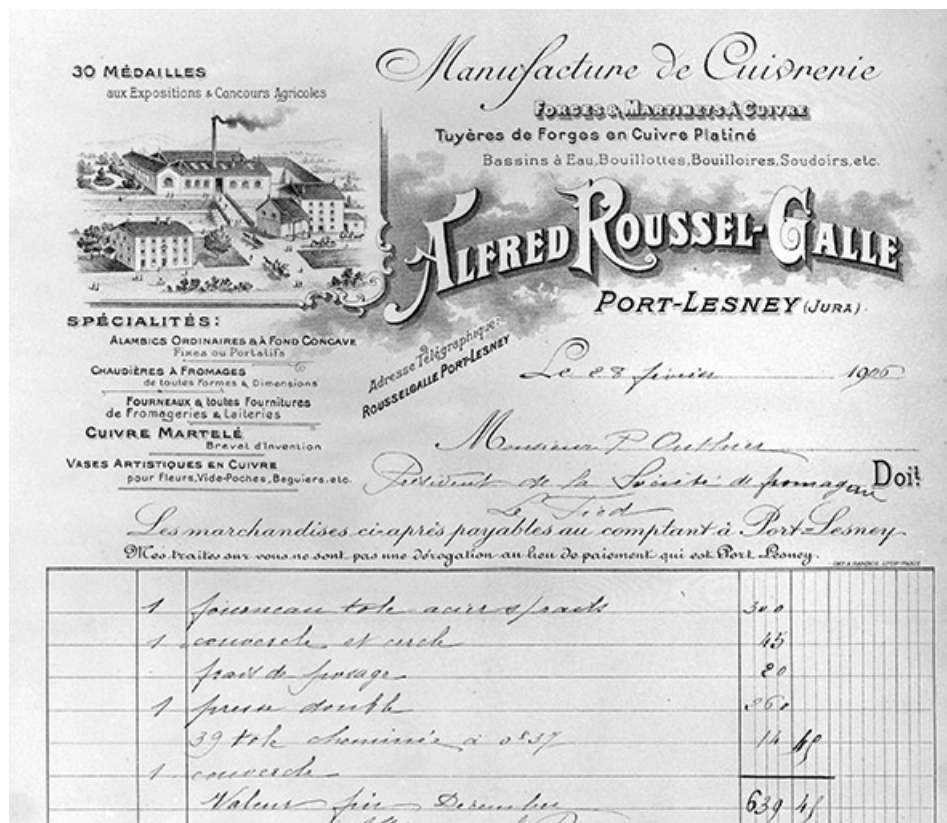 30 MÉDAILLES
aux Expositions & Concours Agricoles
Manufacture de Cuivrerie
FORGES & MARTINETS À CUIVRE
Tuyères de Forges en Cuivre Platiné
Bassins à Eau, Bouillottes, Bouilloires, Soudoirs, etc.
ALFRED ROUSSEL-GALLE
PORT-LESNEY (JURA)
SPÉCIALITÉS:
ALAMBICS ORDINAIRES & À FOND CONCAVE
Fixes ou Portatifs
CHAUDIÈRES À FROMAGES
de toutes Formes & Dimensions
FOURNEAUX & toutes Fournitures
de Fromageries & Laiteries
CUIVRE MARTELÉ
Brevet d'Invention
VASES ARTISTIQUES EN CUIVRE
pour Fleurs, Vide-Poches, Baguiers, etc.
Adresse Télégraphique:
ROUSSELGALLE PORT-LESNEY
Le 28 février 1906
Monsieur P
Président de la Société de fromagerie Doit
Le Fied
Les marchandises ci-après payables au comptant à Port-Lesney
Mes traites sur vous ne sont pas une dérogation au lieu de paiement qui est Port-Lesney.
1 fourneau tole acier 300
1 couvercle et cercle 45
frais de posage 20
1 presse double 260
39 tole cheminée à 0f37 14 45
1 couvercle
Valeur fin Decembre 639 45